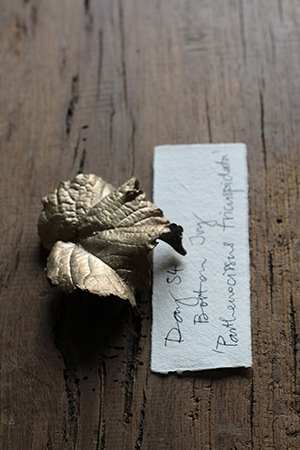 Day 54
Boston Ivy
'Parthenocissus tricuspidata'